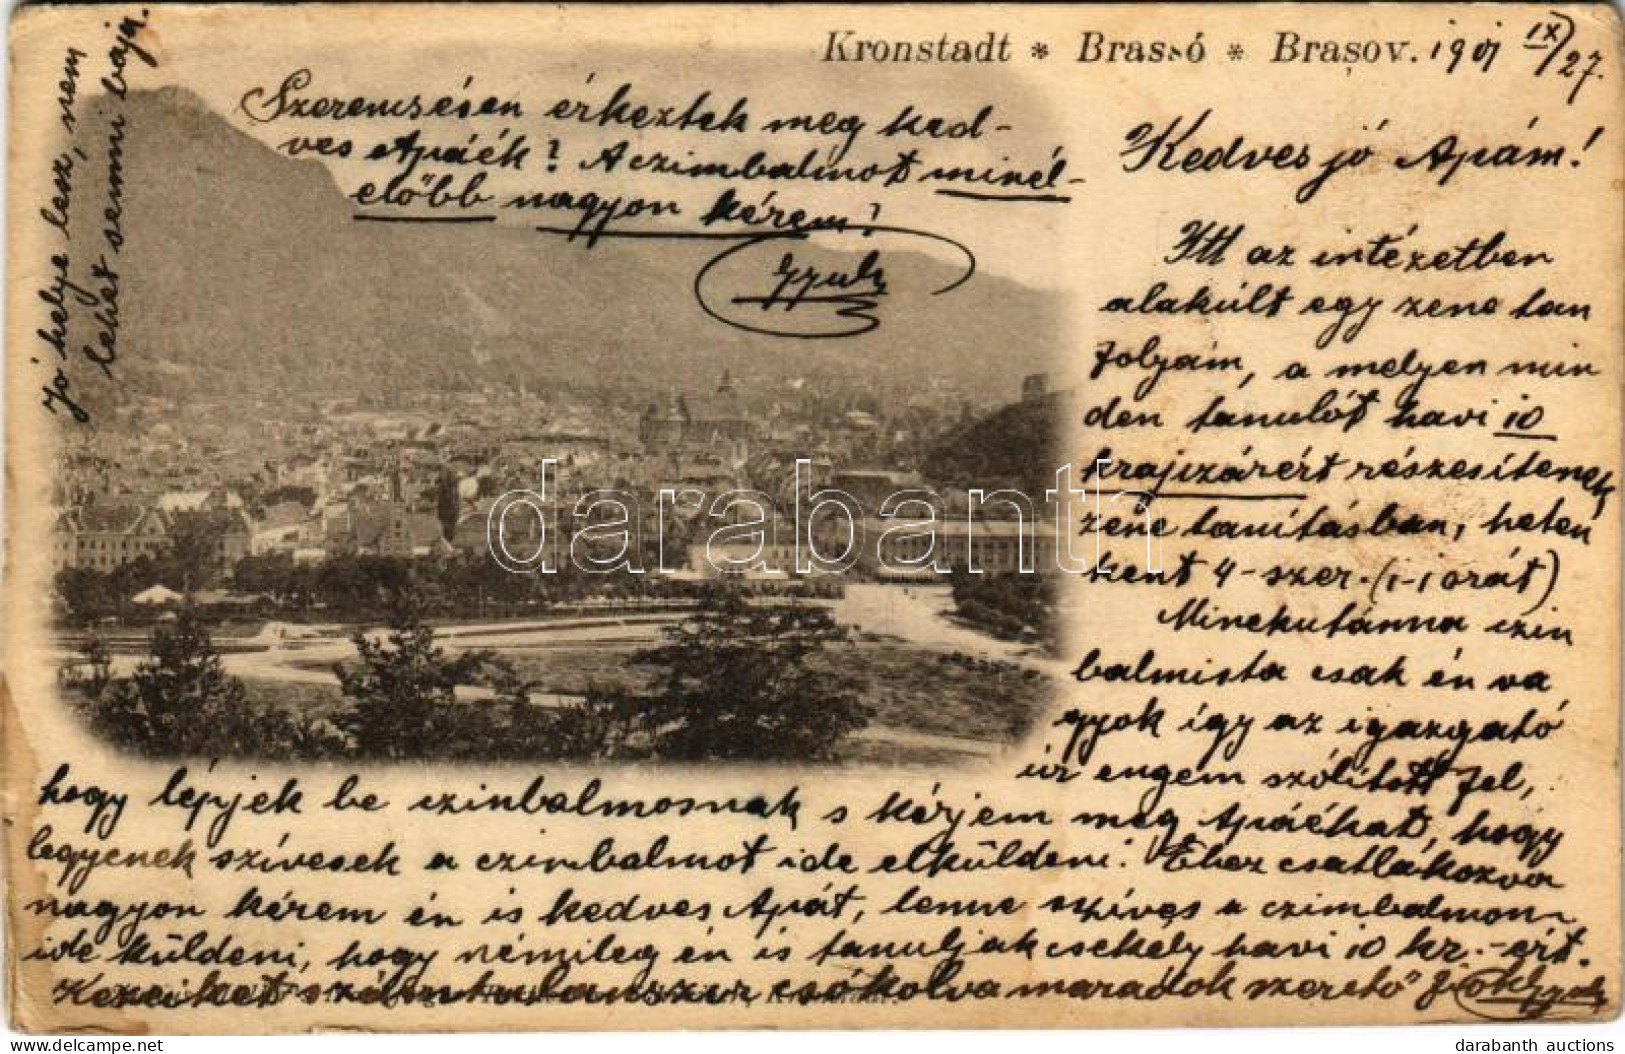 Kronstadt * Brassó * Brașov. 1901 IX/27.
Kedves jó Apám!
Itt az intézetben
alakúlt egy zene tan
folyam, a melyen min
den tanulót havi 10
krajczárért részesítenek
zene tanításban, heten
ként 4-szer. (1-1 órát)
Minekutánna czim
balmista csak én va
gyok így az igazgató
úr engem szólított fel,
hogy lépjek be czimbalmosnak s kérjem meg Apáékat, hogy
legyenek szívesek a czimbalmot ide elküldeni. Ehez csatlakozva
nagyon kérem én is kedves Apát, lenne szíves a czimbalmom
ide küldeni, hogy némileg én is tanuljak csekély havi 10 kr.-ért.
Kezeiket számtalanszor csókolva maradok szerető fiok Gyula
Szerencsésen érkeztek meg ked-
ves Apáék? A czimbalmot minél-
előbb nagyon kérem!
Gyula
Jó helye lesz, nem
lehet semmi baja.
darabanth
darabanth auctions
www.delcampe.net